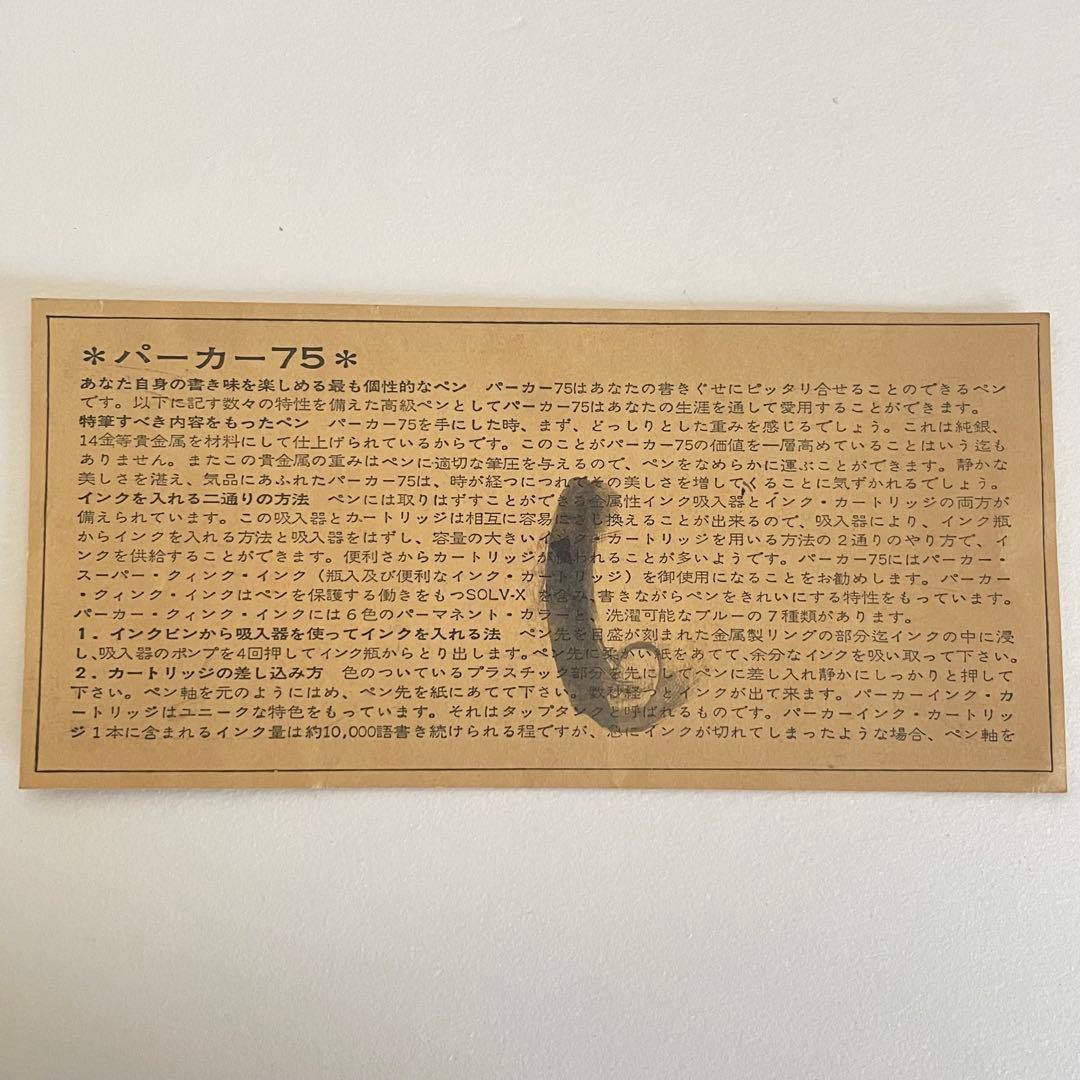 ＊パーカー75＊
あなた自身の書き味を楽しめる最も個性的なペン　パーカー75はあなたの書きぐせにピッタリ合せることのできるペン
です。以下に記す数々の特性を備えた高級ペンとしてパーカー75はあなたの生涯を通して愛用することができます。
特筆すべき内容をもったペン　パーカー75を手にした時、まず、どっしりとした重みを感じるでしょう。これは純銀、
14金等貴金属を材料にして仕上げられているからです。このことがパーカー75の価値を一層高めていることはいう迄も
ありません。またこの貴金属の重みはペンに適切な筆圧を与えるので、ペンをなめらかに運ぶことができます。静かな
美しさを湛え、気品にあふれたパーカー75は、時が経つにつれてその美しさを増してくることに気ずかれるでしょう。
インクを入れる二通りの方法　ペンには取りはずすことができる金属性インク吸入器とインク・カートリッジの両方が
備えられています。この吸入器とカートリッジは相互に容易にさし換えることが出来るので、吸入器により、インク瓶
からインクを入れる方法と吸入器をはずし、容量の大きいインク・カートリッジを用いる方法の２通りのやり方で、イ
ンクを供給することができます。便利さからカートリッジが使われることが多いようです。パーカー75にはパーカー・
スーパー・クィンク・インク（瓶入及び便利なインク・カートリッジ）を御使用になることをお勧めします。パーカー
・クィンク・インクはペンを保護する働きをもつSOLV-Xを含み、書きながらペンをきれいにする特性をもっています。
パーカー・クィンク・インクには６色のパーマネント・カラーと、洗濯可能なブルーの７種類があります。
１．インクビンから吸入器を使ってインクを入れる法　ペン先を目盛が刻まれた金属製リングの部分迄インクの中に浸
し、吸入器のポンプを4回押してインク瓶からとり出します。ペン先に柔かい紙をあてて、余分なインクを吸い取って下さい。
２．カートリッジの差し込み方　色のついているプラスチック部分を先にしてペンに差し入れ静かにしっかりと押して
下さい。ペン軸を元のようにはめ、ペン先を紙にあてて下さい。数秒経つとインクが出て来ます。パーカーインク・カ
ートリッジはユニークな特色をもっています。それはタップタンクと呼ばれるものです。パーカーインク・カートリッ
ジ１本に含まれるインク量は約10,000語書き続けられる程ですが、急にインクが切れてしまったような場合、ペン軸を